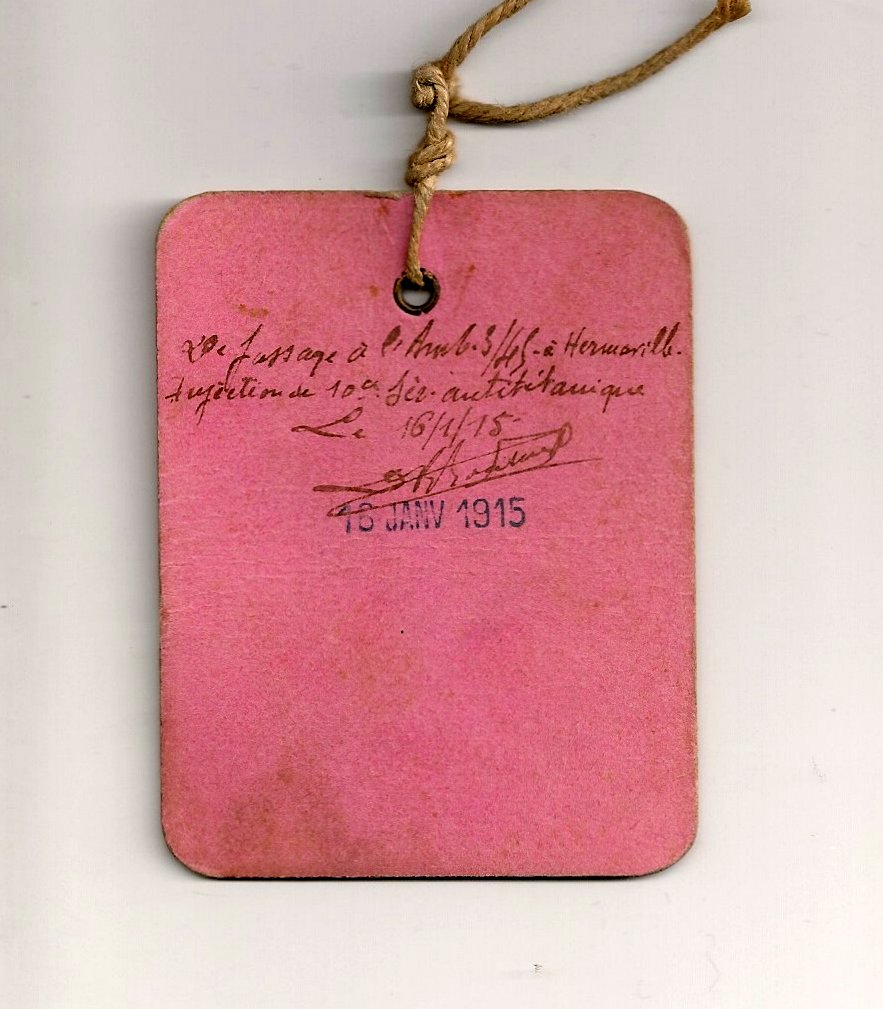 De passage à l'Amb. 3/45 - à Hermaville.
Injection de 10cc Sér. antitétanique
Le 16/1/15
16 JANV 1915